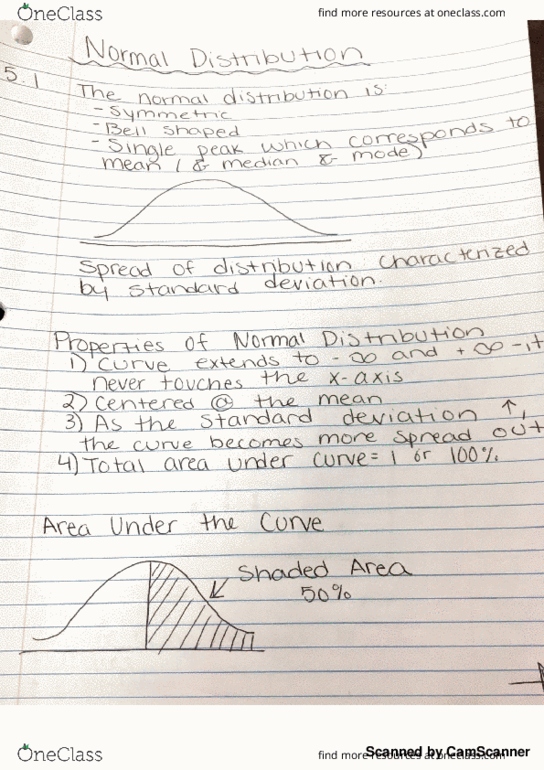 OneClass
find more resources at oneclass.com
Normal Distribution
5.1
The normal distribution is:
- Symmetric
- Bell shaped
- Single peak which corresponds to
mean (& median & mode)
Spread of distribution characterized
by standard deviation.
Properties of Normal Distribution
1) Curve extends to -∞ and +∞ - it
never touches the x-axis
2) Centered @ the mean
3) As the standard deviation ↑,
the curve becomes more spread out
4) Total area under curve = 1 or 100%
Area Under the Curve
Shaded Area
50%
OneClass
find more resources at oneclass.com
Scanned by CamScanner